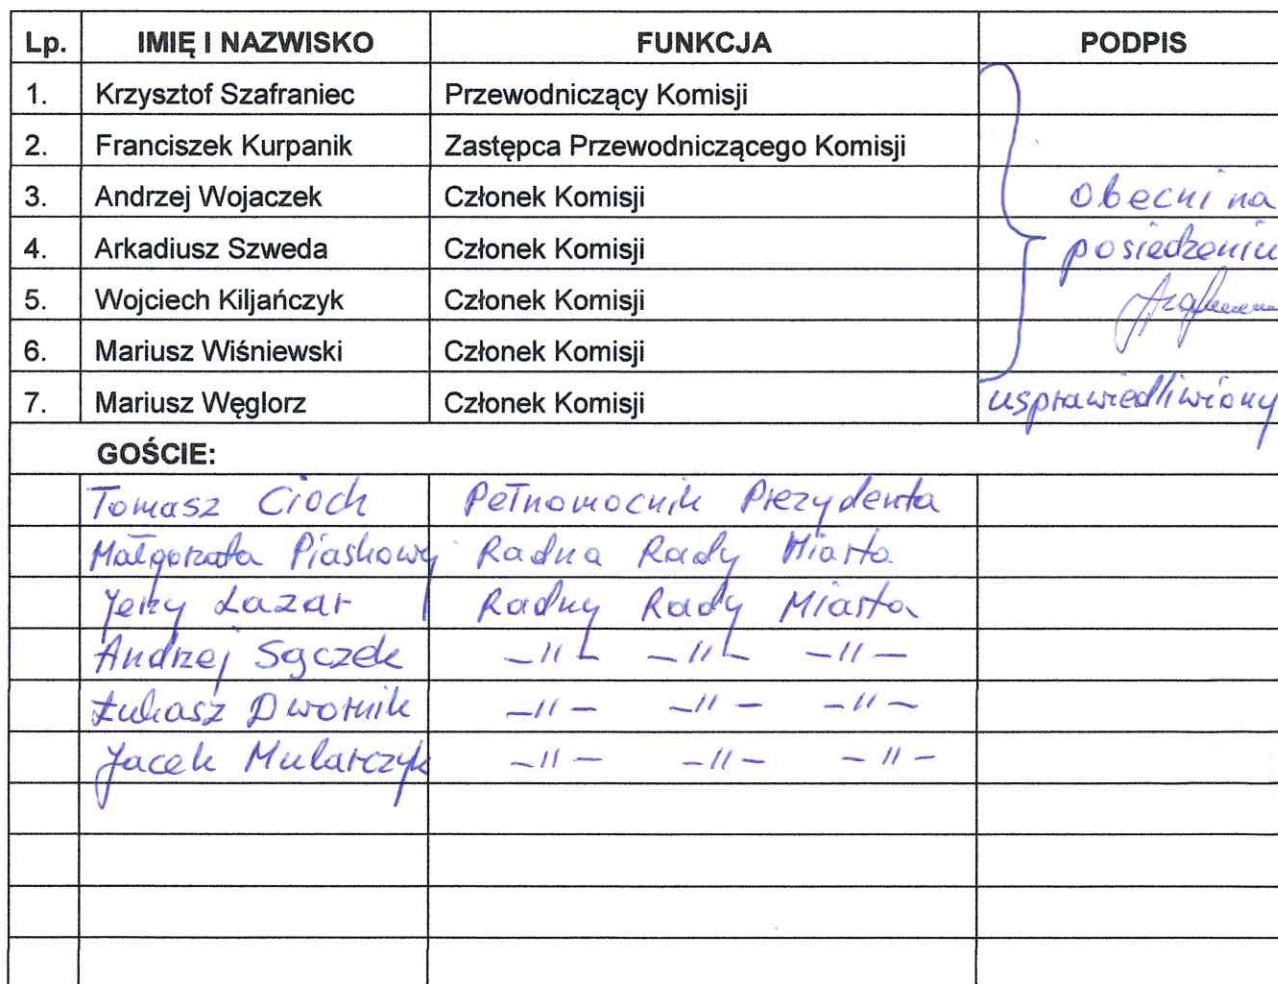 Lp. IMIĘ I NAZWISKO FUNKCJA PODPIS
1. Krzysztof Szafraniec Przewodniczący Komisji
2. Franciszek Kurpanik Zastępca Przewodniczącego Komisji
3. Andrzej Wojaczek Członek Komisji obecni na
4. Arkadiusz Szweda Członek Komisji posiedzeniu
5. Wojciech Kiljańczyk Członek Komisji
6. Mariusz Wiśniewski Członek Komisji
7. Mariusz Węglorz Członek Komisji usprawiedliwiony
GOŚCIE:
Tomasz Cioch Pełnomocnik Prezydenta
Małgorzata Piaskowy Radna Rady Miasta
Jerzy Lazar Radny Rady Miasta
Andrzej Sączek –〃– –〃– –〃–
Łukasz Dwornik –〃– –〃– –〃–
Jacek Mularczyk –〃– –〃– –〃–